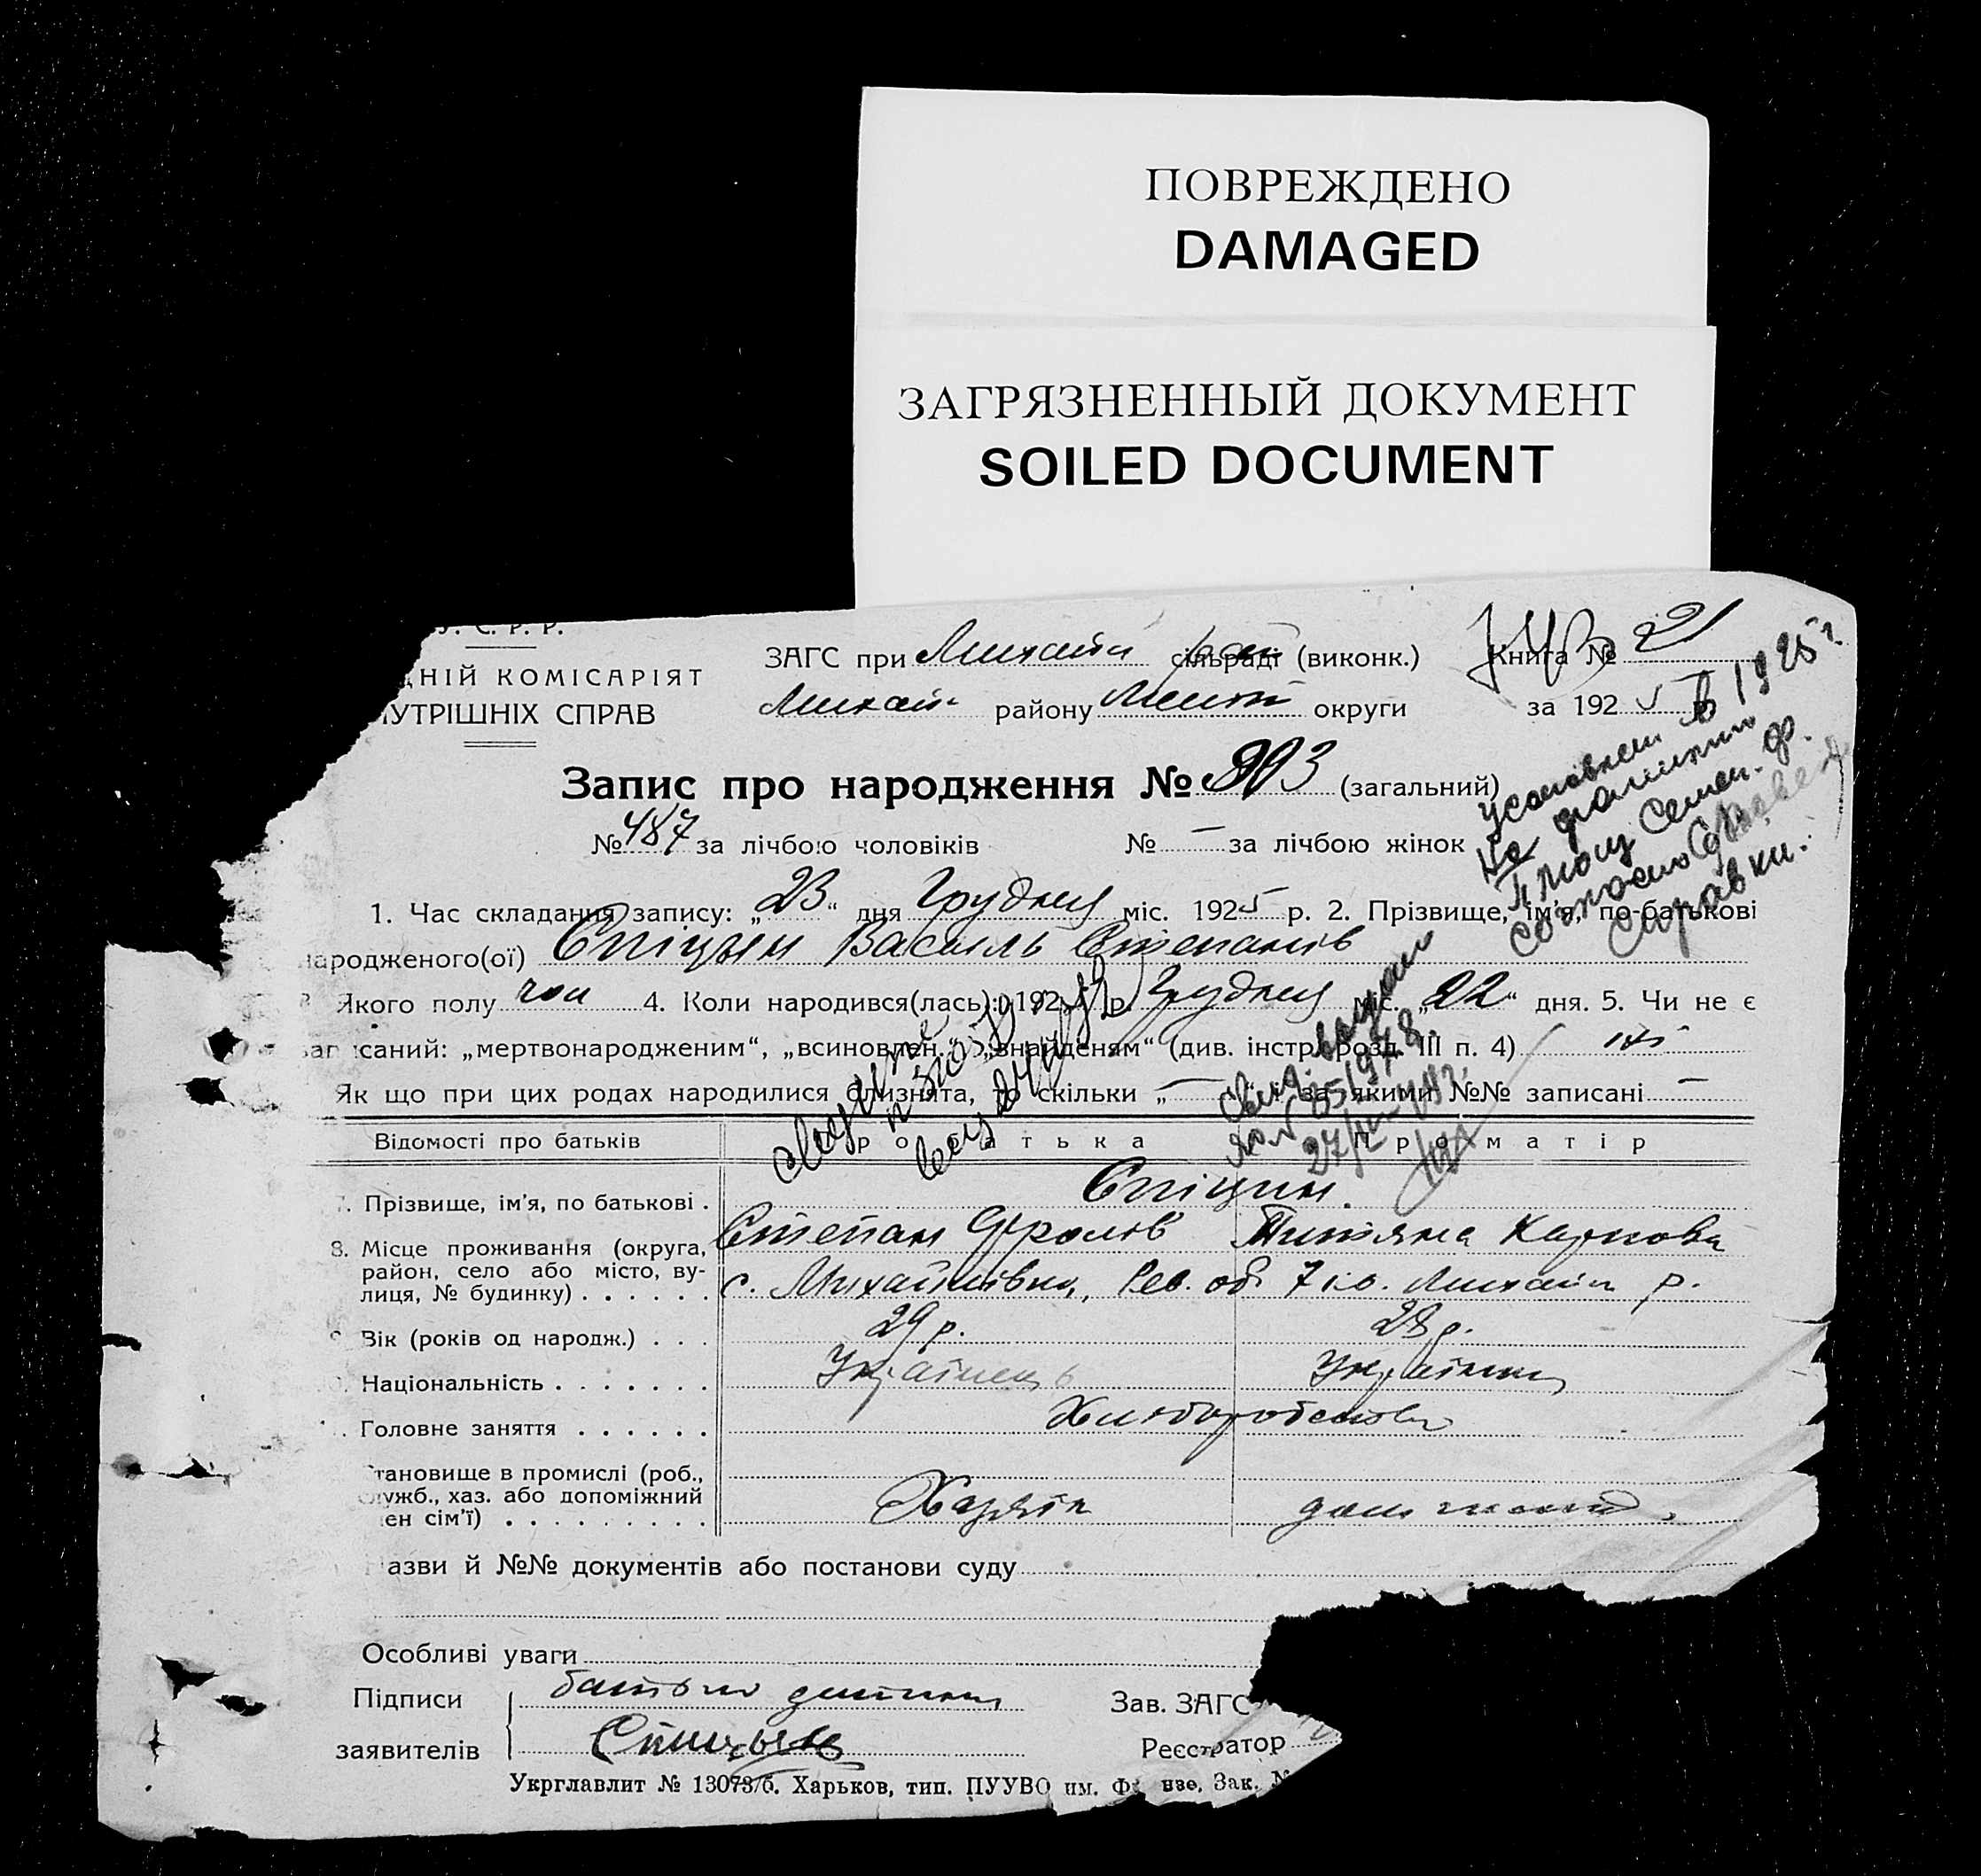 ПОВРЕЖДЕНО
DAMAGED
ЗАГРЯЗНЕННЫЙ ДОКУМЕНТ
SOILED DOCUMENT
У. С. Р. Р.
ДНІЙ КОМІСАРІЯТ
УТРІШНІХ СПРАВ
ЗАГС при Михайл рай сільраді (виконк.)
Михай району Меліт округи
Книга № 21
за 1925 р.
Запис про народження № 893 (загальний)
№ 487 за лічбою чоловіків № — за лічбою жінок
Усыновлен в 1925 г.
на фамилию
Семен. Ф.
согласно
справки.
1. Час складання запису: „23“ дня Грудня міс. 1925 р. 2. Прізвище, ім'я, по-батькові
народженого(ої) Спіцын Василь Степанів
Якого полу чол 4. Коли народився(лась): 1925 р. Грудня міс. „22“ дня. 5. Чи не є
записаний: „мертвонародженим“, „всиновлен.“, „знайденям“ (див. інстр. розд. III п. 4) ні
Як що при цих родах народилися близнята, то скільки „—“ і за якими №№ записані —
Відомості про батьків Про батька Про матір
7. Прізвище, ім'я, по батькові . Спіцин.
Степан Фролів Титяна Карпова
8. Місце проживання (округа,
район, село або місто, ву-
лиця, № будинку) . . . . . . с. Михайлівка, Рев. 7 Михайл р.
Вік (років од народж.) . . . 29 р. 28 р.
Національність . . . . . . . Українець Українка
Головне заняття . . . . . . Хліборобство
тановище в промислі (роб.,
служб., хаз. або допоміжний
ен сім'ї) . . . . . . . . . Хазяїн
азви й №№ документів або постанови суду
Особливі уваги
Підписи батько дитини Зав. ЗАГС
заявителів Спицын Реєстратор
Укрглавлит № 13073/б. Харьков, тип. ПУУВО им. Ф нзе, Зак. №